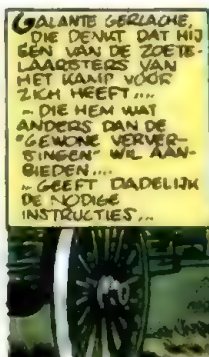 GALANTE GERLACHE,
DIE DENKT DAT HIJ
EEN VAN DE ZOETE-
LAARSTERS VAN
HET KAMP VOOR
ZICH HEEFT....
~ DIE HEM WAT
ANDERS DAN DE
"GEWONE VERVER-
SINGEN" WIL AAN-
BIEDEN....
~ GEEFT DADELIJK
DE NODIGE
INSTRUCTIES...